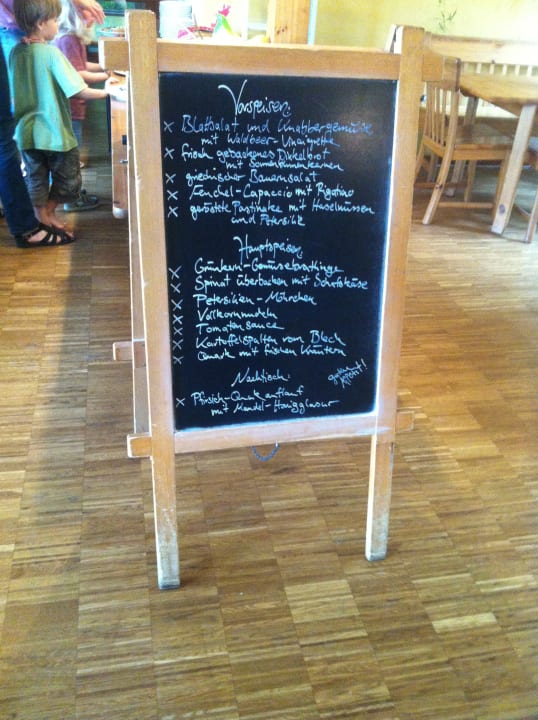 Vorspeisen:
x Blattsalat und Knabbergemüse
mit Waldbeer-Vinaigrette
x frisch gebackenes Dinkelbrot
mit Sonnenblumenkernen
x griechischer Bauernsalat
x Fenchel-Capaccio mit Pigatino
x geröstete Pastinake mit Haselnüssen
und Petersilie
Hauptspeisen:
x Grünkern-Gemüsebratlinge
x Spinat überbacken mit Schafskäse
x Petersilien-Möhrchen
x Vollkornnudeln
x Tomatensauce
x Kartoffelspalten vom Blech
x Quark mit frischen Kräutern
guten Appetit!
Nachtisch:
x Pfirsich-Quarkauflauf
mit Mandel-Honigglasur